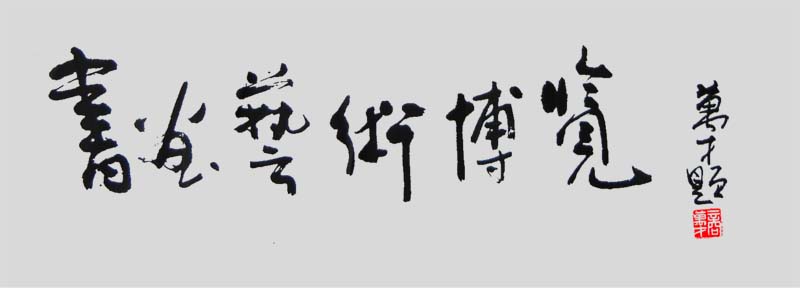 書畫藝術博覽
萬才題